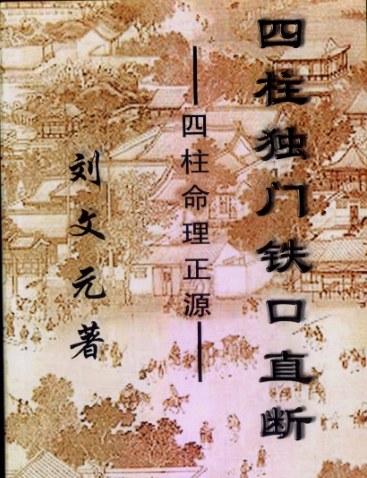 四柱独门铁口直断
——四柱命理正源——
刘文元著